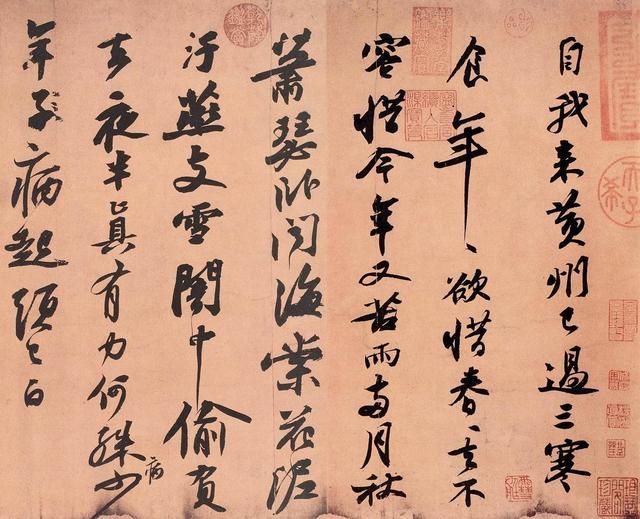 自我来黄州已過三寒
食年〻欲惜春〻去不
容惜今年又苦雨兩月秋
蕭瑟卧聞海棠花泥
汙燕支雪闇中偷負
去夜半真有力何殊少
年子病起頭已白
病